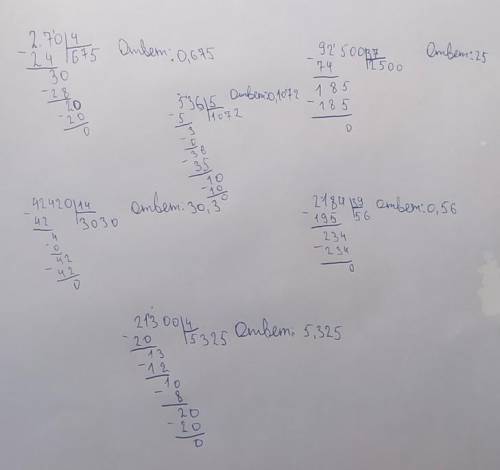 2.70|4 Ответ: 0,675
- 24 |675
30
- 28
20
- 20
0
536|5 Ответ: 0,1072
- 5 |1072
3
- 0
38
- 35
10
- 10
0
92500|37 Ответ: 25
- 74 |2500
185
- 185
0
42420|14 Ответ: 30,3
- 42 |3030
4
- 0
42
- 42
0
2184|39 Ответ: 0,56
- 195 |56
234
- 234
0
21300|4 Ответ: 5,325
- 20 |5325
13
- 12
10
- 8
20
- 20
0